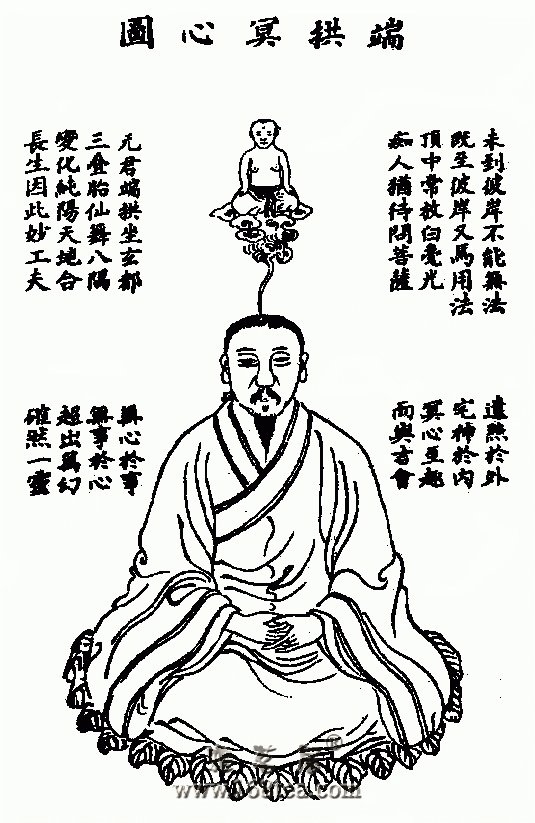 端拱冥心圖
未到彼岸不能無法
既至彼岸又焉用法
頂中常放白毫光
痴人猶待問菩薩
元君端拱坐玄都
三疊胎仙舞八隅
變化純陽天地合
長生因此妙工夫
遺照於外
宅神於內
冥心至趣
而與吉會
無心於事
無事於心
超出萬幻
確然一靈